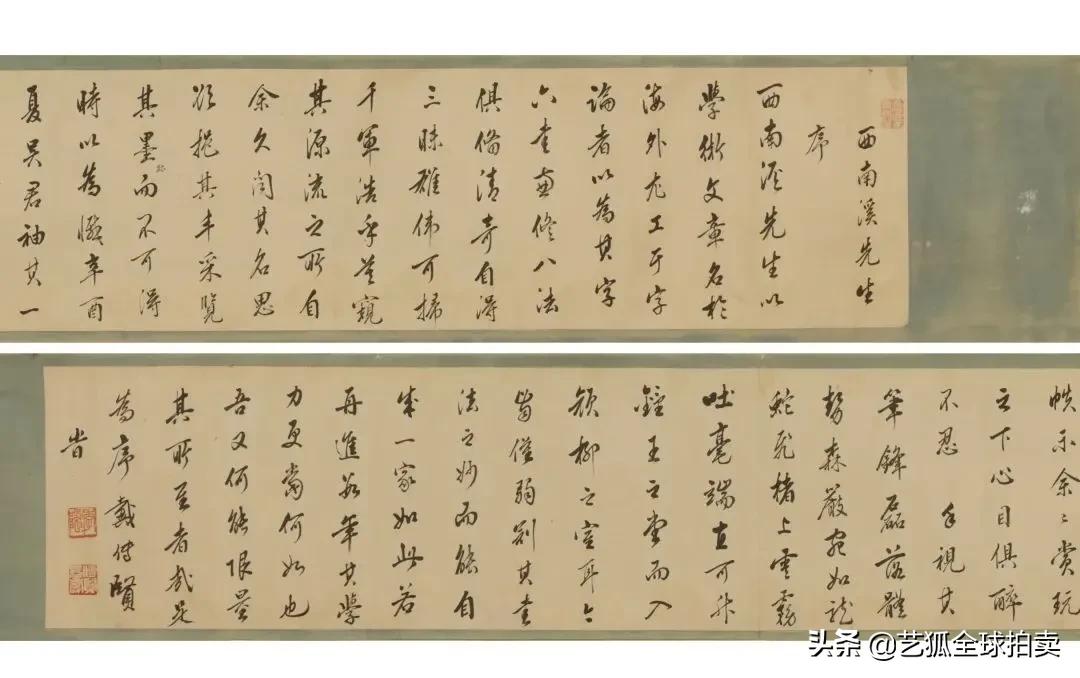 西南溪先生
序
西南溪先生以
學術文章名於
海外尤工于字
論者以為其字
六書兼修八法
俱備清奇自得
三昧雄偉可掃
千軍浩乎莫窺
其源流之所自
余久聞其名思
欲挹其丰采覽
其墨跡而不可得
時以為憾辛酉
夏吳君袖其一
帙示余々賞玩
之下心目俱醉
不忍手視其
筆鋒磊落體
勢森嚴宛如龍
蛇飛楮上雲霧
吐毫端直可升
鍾王之堂而入
顏柳之室耳
僅弱冠其書
法之妙而能自
成一家如此若
再進數年其學
力更當何如也
吾又何能限量
其所至者哉是
為序戴傳賢
头条 @艺狐全球拍卖